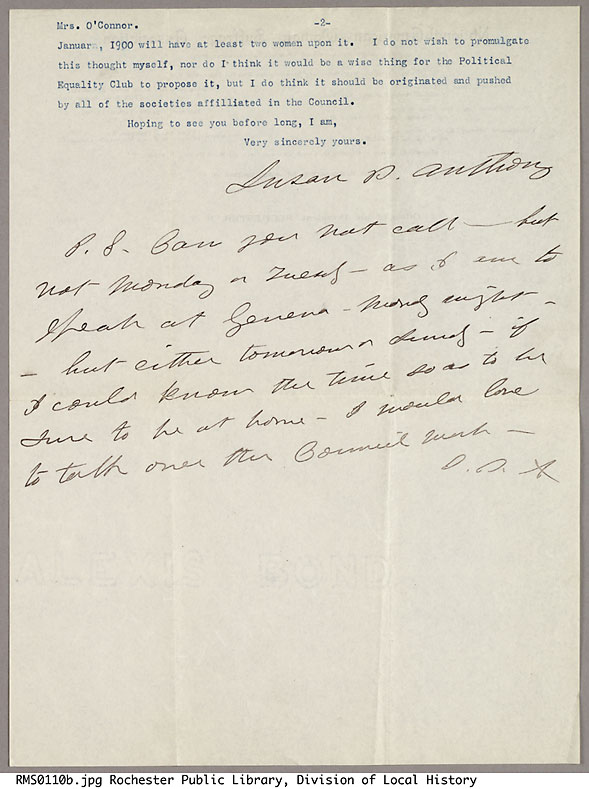 Mrs. O'Connor. -2-
January, 1900 will have at least two women upon it. I do not wish to promulgate
this thought myself, nor do I think it would be a wise thing for the Political
Equality Club to propose it, but I do think it should be originated and pushed
by all of the societies affilliated in the Council.
Hoping to see you before long, I am,
Very sincerely yours.
Susan B. Anthony
P. S. Can you not call — but
not Monday or Tuesdy — as I am to
speak at Geneva — Mondy night —
— but either tomorrow or Sundy — if
I could know the time so as to be
sure to be at home — I would love
to talk over the Council work —
S. B. A
BOND
RMS0110b.jpg Rochester Public Library, Division of Local History